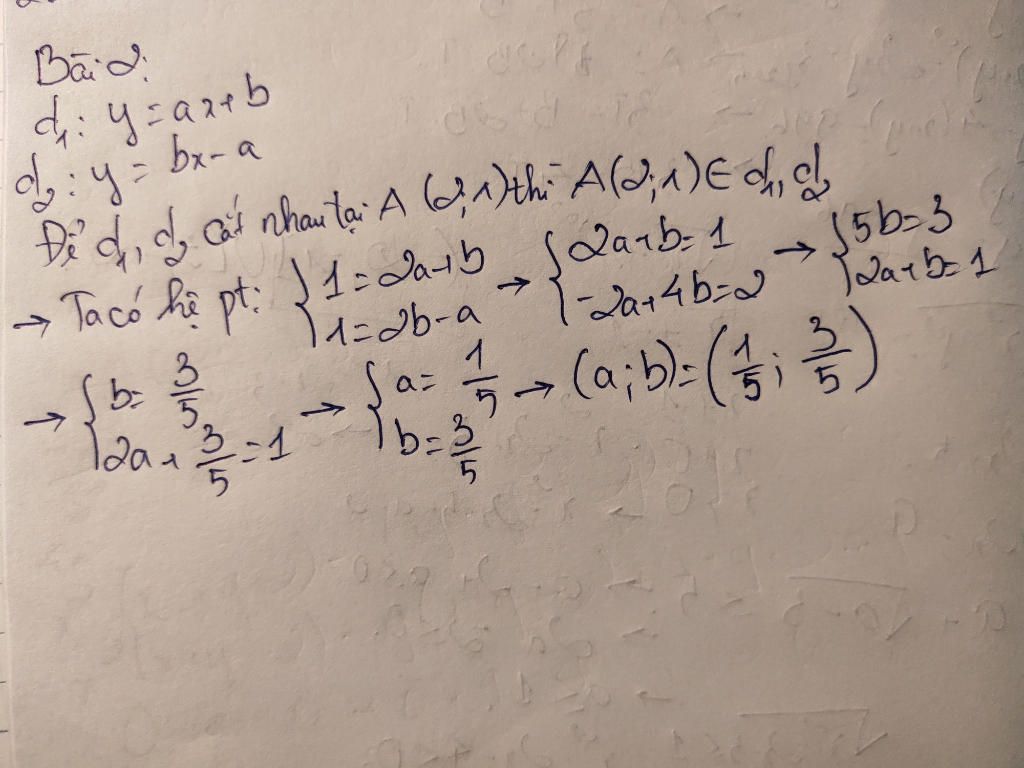 Bài 2:
d₁: y = ax + b
d₂: y = bx - a
Để d₁, d₂ cắt nhau tại A (2;1) thì A(2;1) ∈ d₁, d₂
→ Ta có hệ pt: { 1 = 2a + b ; 1 = 2b - a → { 2a + b = 1 ; -2a + 4b = 2 → { 5b = 3 ; 2a + b = 1
→ { b = 3/5 ; 2a + 3/5 = 1 → { a = 1/5 ; b = 3/5 → (a; b) = (1/5; 3/5)